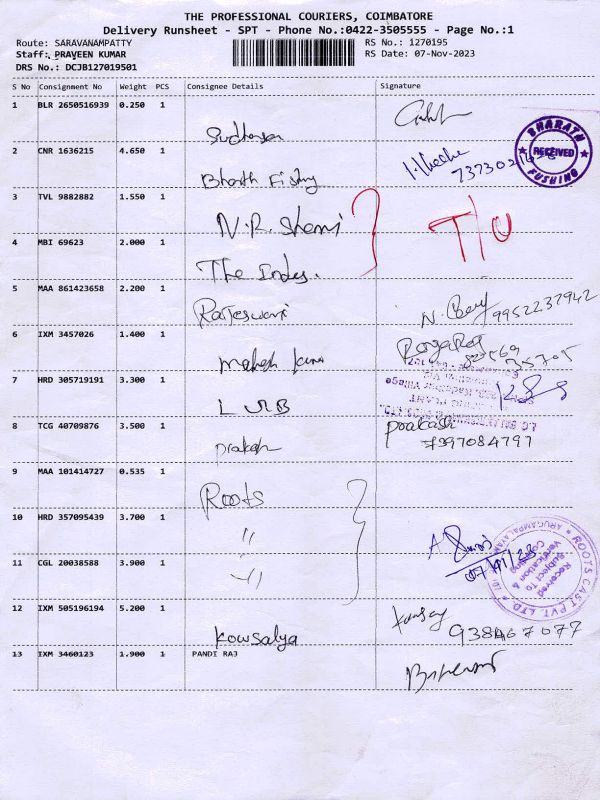 THE PROFESSIONAL COURIERS, COIMBATORE
Delivery Runsheet - SPT - Phone No.:0422-3505555 - Page No.:1
Route: SARAVANAMPATTY
RS No.: 1270195
Staff: PRAVEEN KUMAR
RS Date: 07-Nov-2023
DRS No.: DCJB127019501
S No Consignment No Weight PCS Consignee Details Signature
1 BLR 2650516939 0.250 1
Sudharsan
BHARATH
RECEIVED
FUSHING
2 CNR 1636215 4.650 1
Bharth
3 TVL 9882882 1.550 1
N.R. Shami
T/U
4 MBI 69623 2.000 1
The Indus.
5 MAA 861423658 2.200 1
Rajeswari
9952237942
6 IXM 3457026 1.400 1
Mahesh
7 HRD 305719191 3.300 1
8 TCG 40709876 3.500 1
prakash
prakash
9 MAA 101414727 0.535 1
Roots
10 HRD 357095439 3.700 1
"
ROOTS CAST PVT. LTD.
Received
Subject To
Verification &
11 CGL 20038588 3.900 1
"
12 IXM 505196194 5.200 1
Kowsalya
13 IXM 3460123 1.900 1 PANDI RAJ